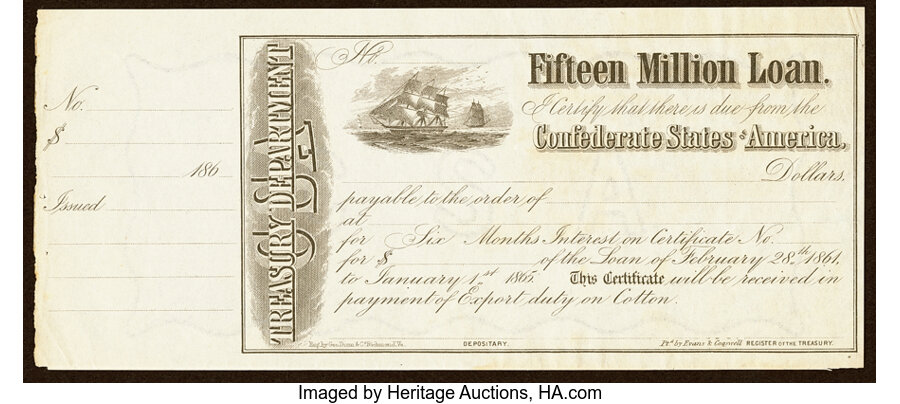 No.
$
186
Issued
TREASURY DEPARTMENT
No.
Fifteen Million Loan.
I Certify that there is due from the
Confederate States of America,
Dollars.
payable to the order of
at
for Six Months Interest on Certificate No.
for $ of the Loan of February 28.th 1861.
to January 1st 1865. This Certificate will be received in
payment of Export duty on Cotton.
Eng. by Geo. Dunn & Co. Richmond, Va. DEPOSITARY. Ptd. by Evans & Cogswell REGISTER OF THE TREASURY.
Imaged by Heritage Auctions, HA.com